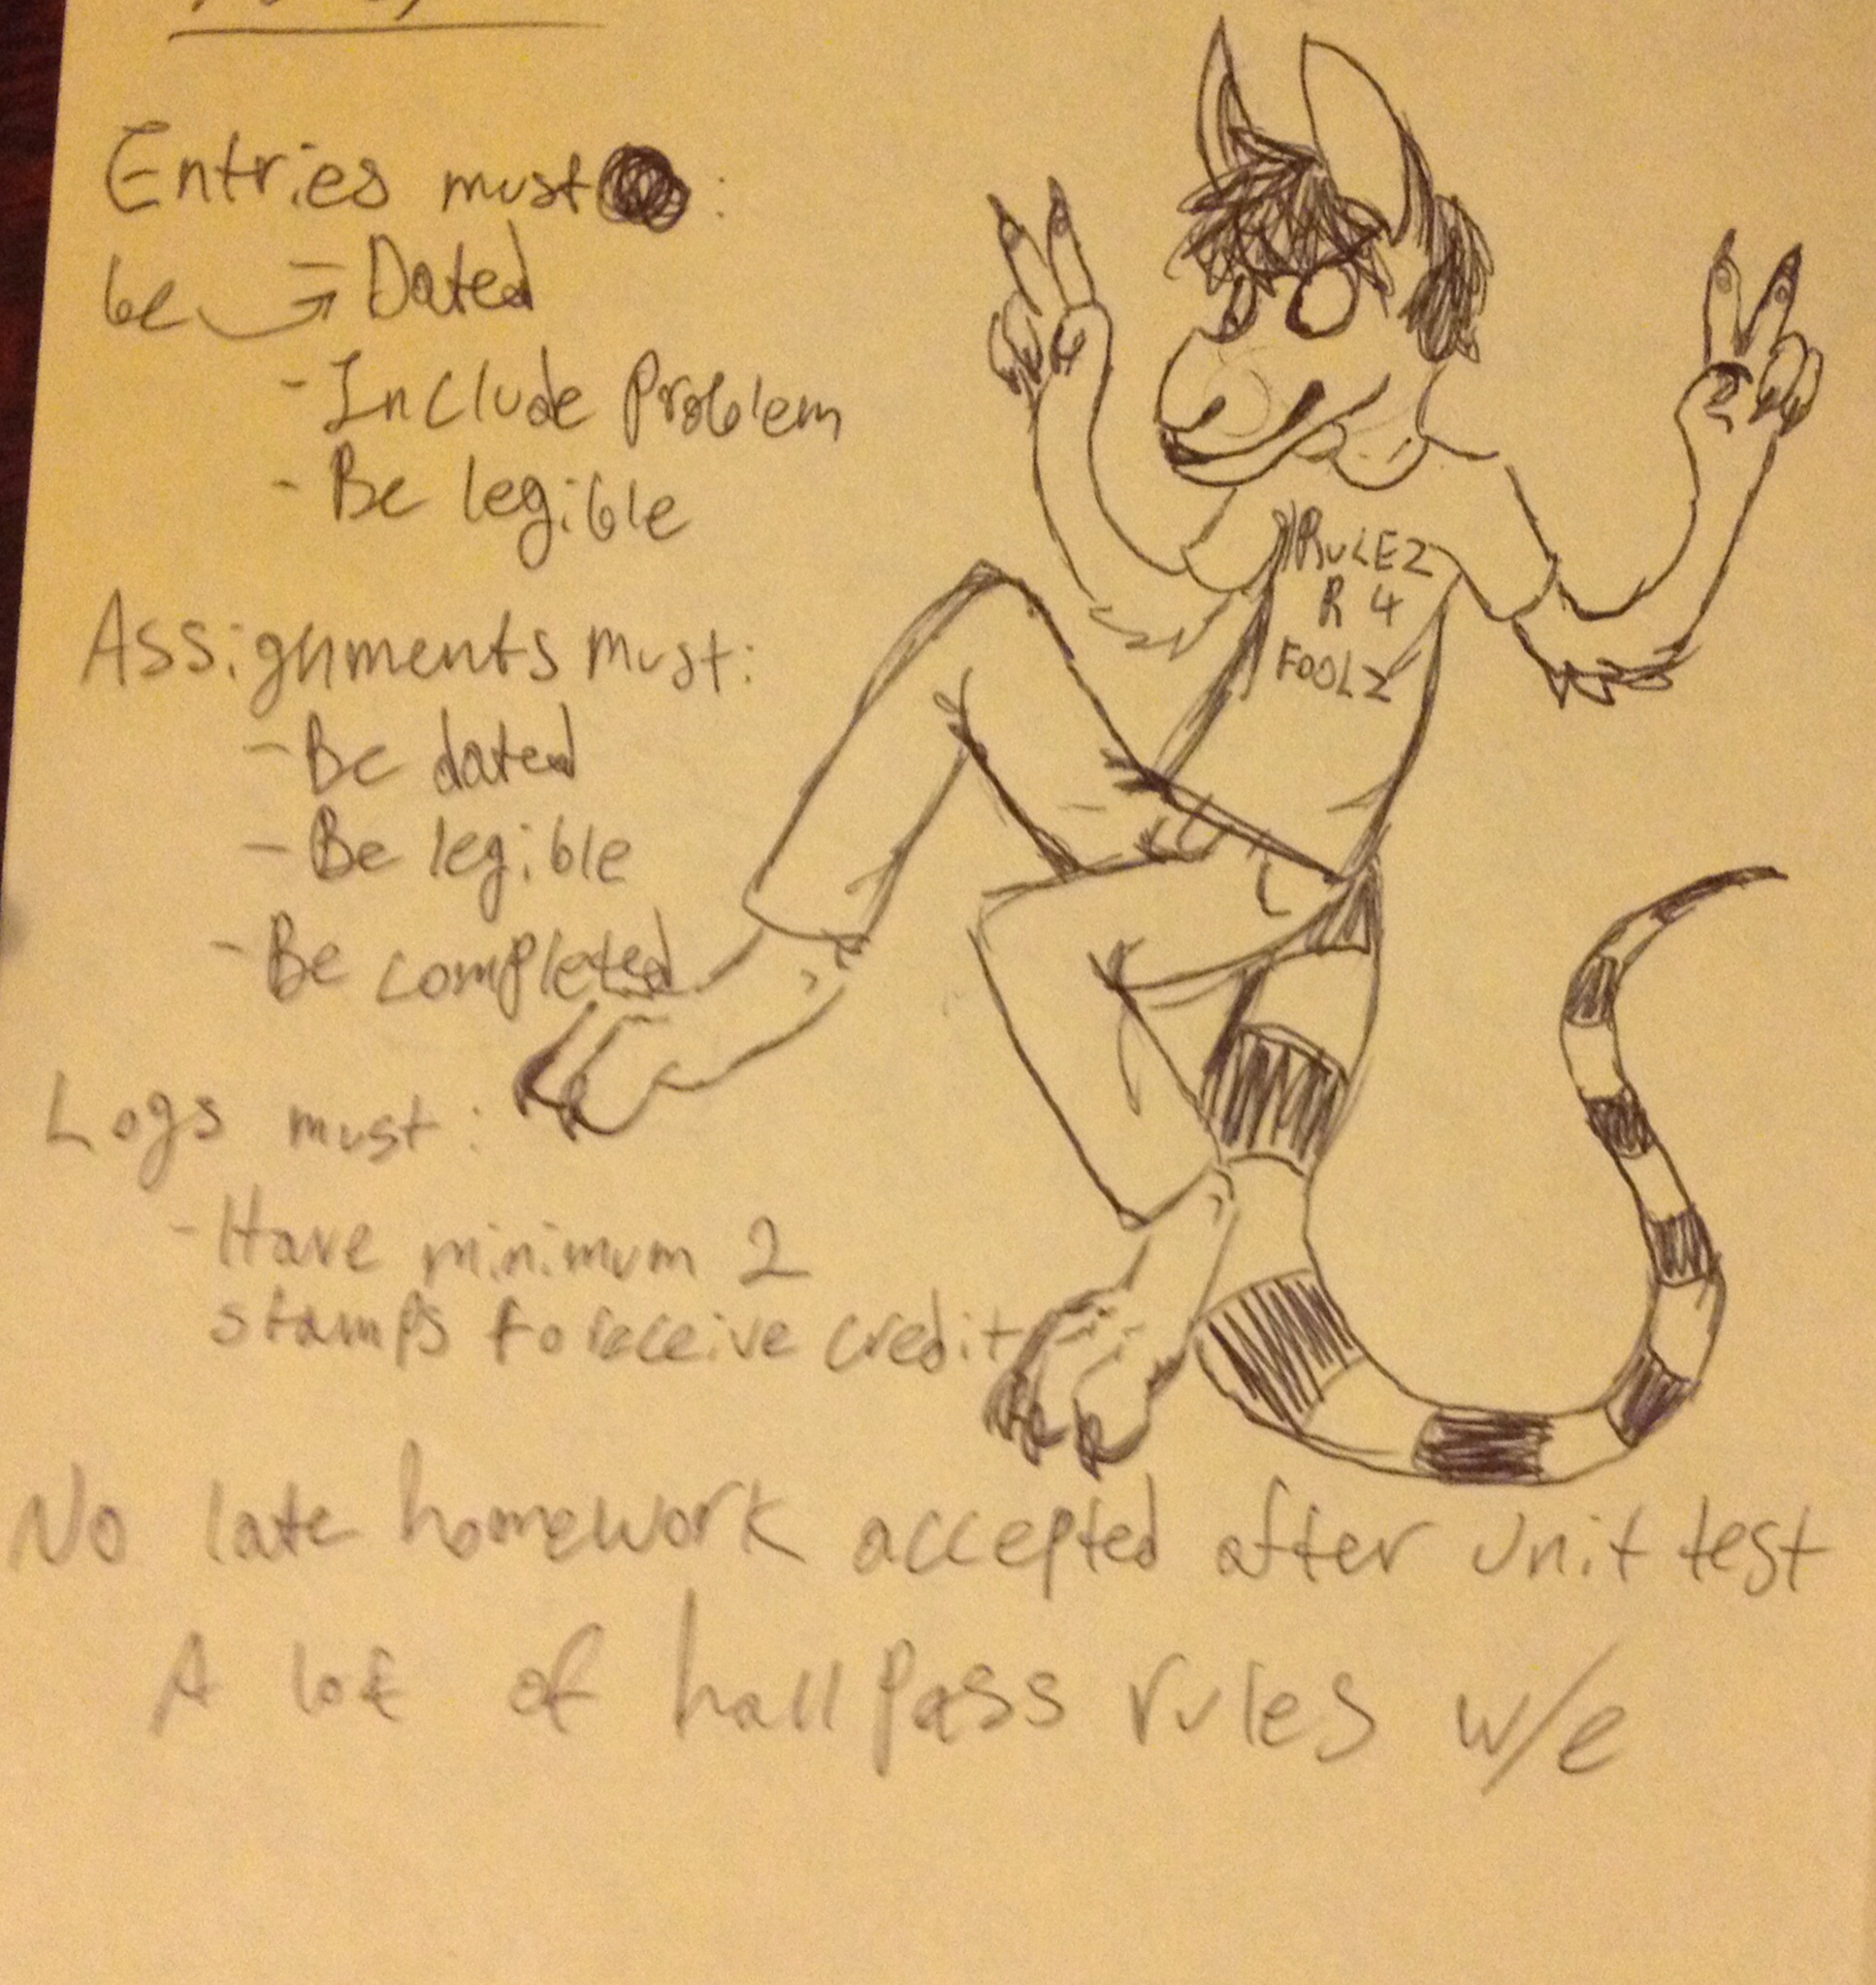 Entries must :
be - Dated
- Include Problem
- Be legible
Assignments must:
- Be dated
- Be legible
- Be completed
Logs must:
- Have minimum 2
stamps to receive credit
No late homework accepted after unit test
A lot of hall pass rules w/e
RULEZ
R 4
FOOLZ